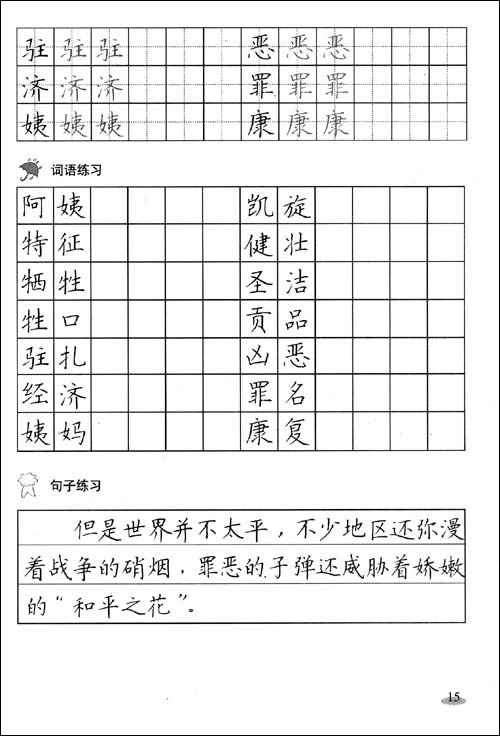 驻驻驻 恶恶恶
济济济 罪罪罪
姨姨姨 康康康
词语练习
阿姨 凯旋
特征 健壮
牺牲 圣洁
牲口 贡品
驻扎 凶恶
经济 罪名
姨妈 康复
句子练习
但是世界并不太平，不少地区还弥漫
着战争的硝烟，罪恶的子弹还威胁着娇嫩
的“和平之花”。
15